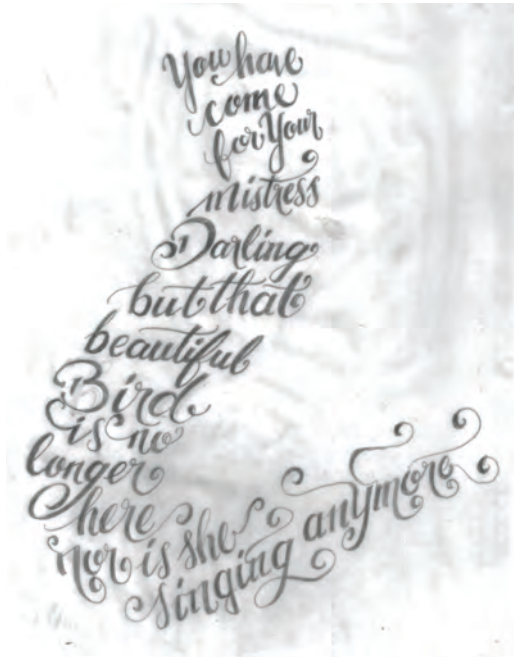 You have
come
for Your
mistress
Darling
but that
beautiful
Bird
is no
longer
here
nor is she
singing anymore